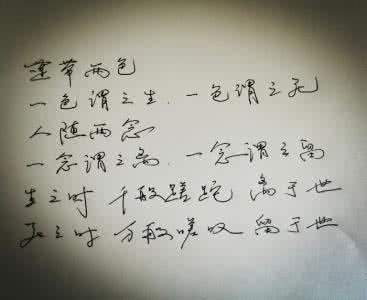 莲带两色
一色谓之生.一色谓之死
人随两念
一念谓之离.一念谓之留
生之时 千般蹉跎 离于世
死之时 万般嗟叹 留于世